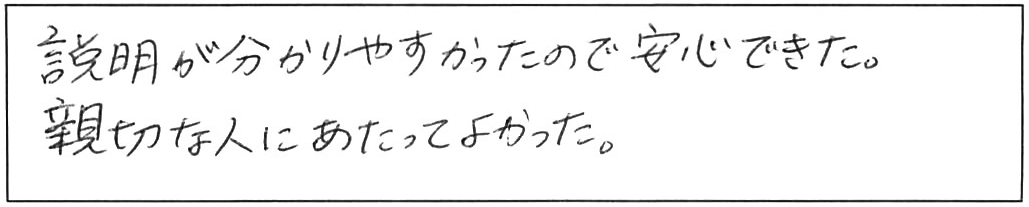 説明が分かりやすかったので安心できた。
親切な人にあたってよかった。